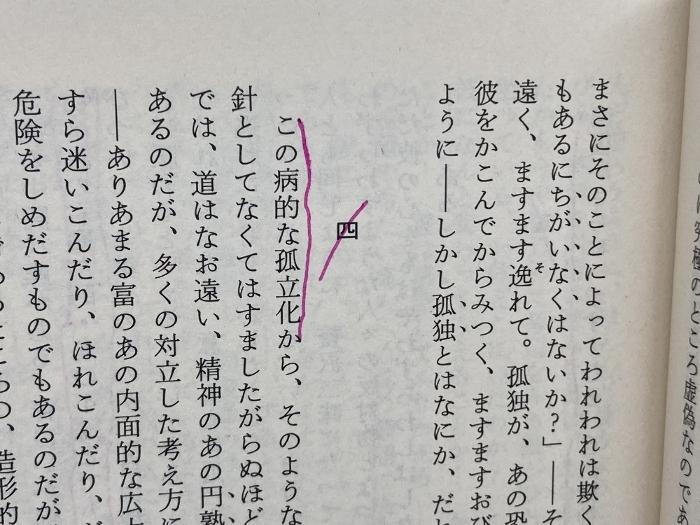 まさにそのことによってわれわれは欺く
もあるにちがいなくはないか？」――そ
遠く、ますます逸れて。孤独が、あの恐
そ
彼をかこんでからみつく、ますますおび
ように――しかし孤独とはなにか、だれ
四
この病的な孤立化から、そのような
針としてなくてはすましたがらぬほど
では、道はなお遠い、精神のあの円熟
あるのだが、多くの対立した考え方に
――ありあまる富のあの内面的な広大
すら迷いこんだり、ほれこんだり、
危険をしめだすものでもあるのだが
造形的
究極のところ虚偽なのであ